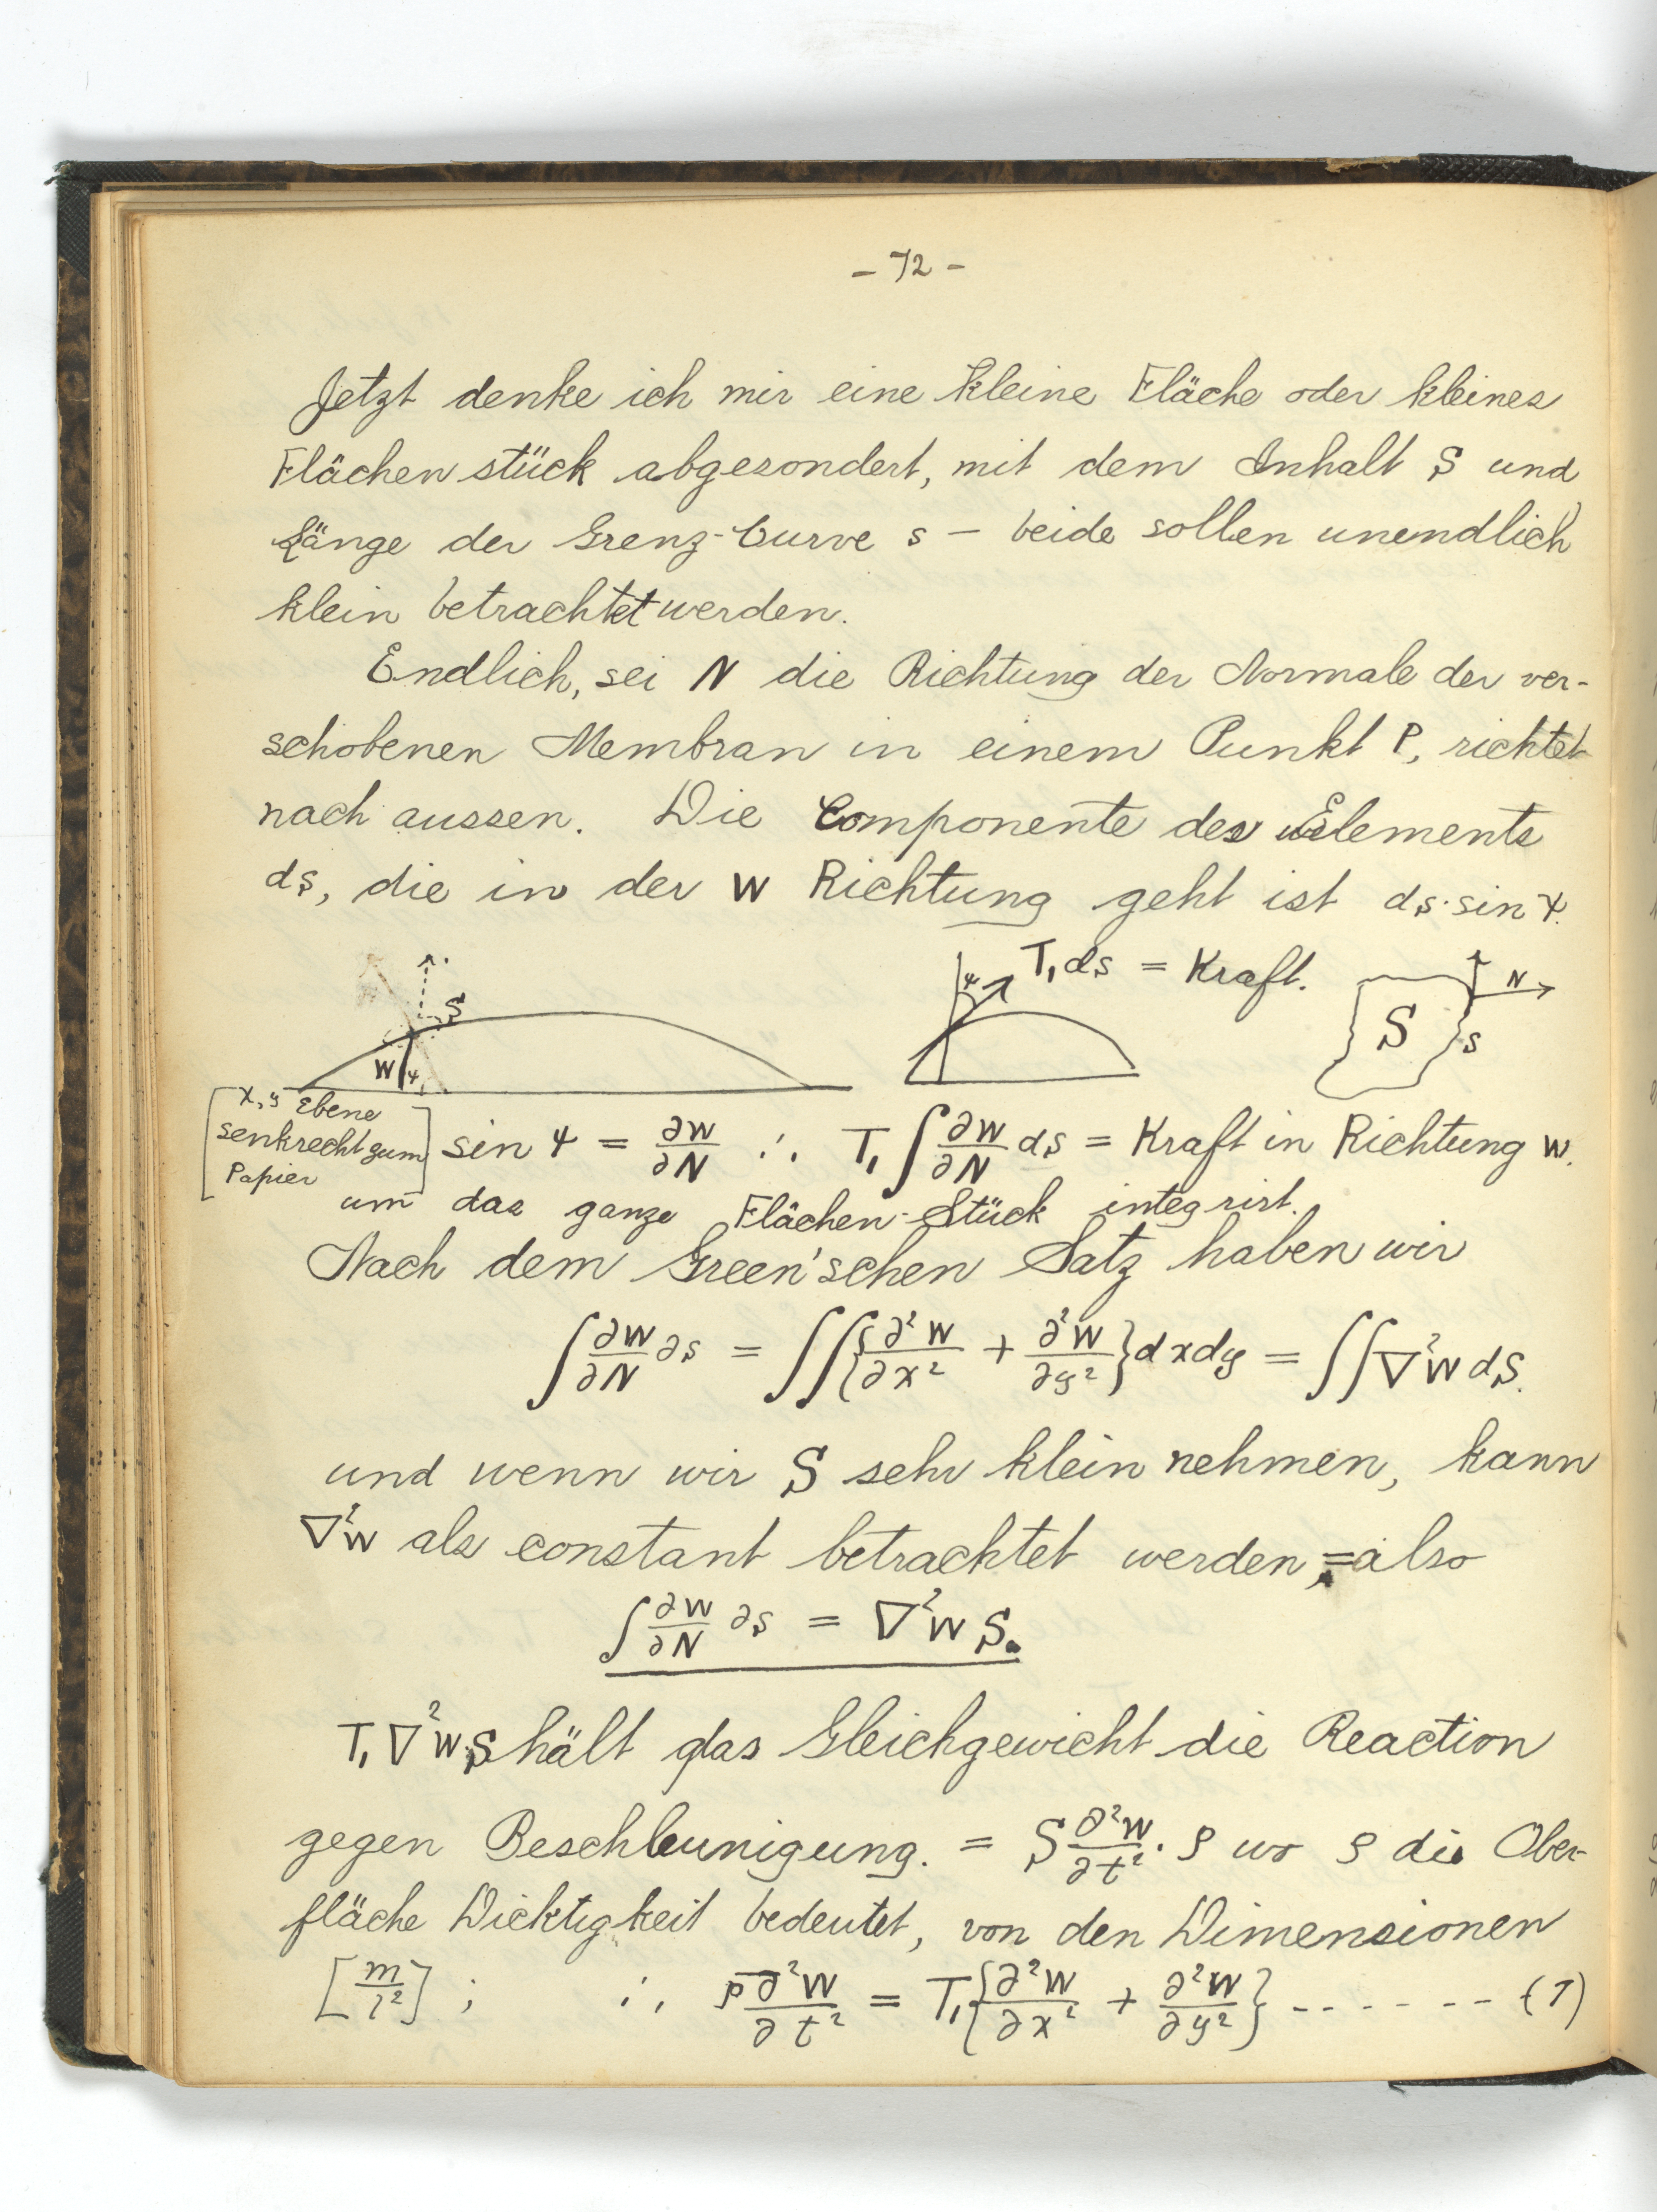 - 72 -
Jetzt denke ich mir eine kleine Fläche oder kleines
Flächenstück abgesondert, mit dem Inhalt S und
Länge der Grenz-Curve s — beide sollen unendlich
klein betrachtet werden.
Endlich, sei N die Richtung der Normale der ver-
schobenen Membran in einem Punkt P, richtet
nach aussen. Die Componente des Elements
ds, die in der W Richtung geht ist ds·sin ψ.
S W ψ
ψ T₁ ds = Kraft.
S s N
[x, y Ebene
senkrecht zum
Papier]
sin ψ = ∂W/∂N ∴ T₁ ∫ ∂W/∂N ds = Kraft in Richtung W.
um das ganze Flächen-Stück integrirt.
Nach dem Green'schen Satz haben wir
∫ ∂W/∂N ∂s = ∬ {∂²W/∂x² + ∂²W/∂y²} dx dy = ∬ ∇²W dS.
und wenn wir S sehr klein nehmen, kann
∇²W als constant betrachtet werden, = also
∫ ∂W/∂N ∂s = ∇²W S.
T₁ ∇²W·S hält das Gleichgewicht die Reaction
gegen Beschleunigung. = S ∂²W/∂t² · ρ wo ρ die Ober-
fläche Dicktigkeit bedeutet, von den Dimensionen
[m/l²] ; ∴ ρ ∂²W/∂t² = T₁ {∂²W/∂x² + ∂²W/∂y²} - - - - - - - (1)